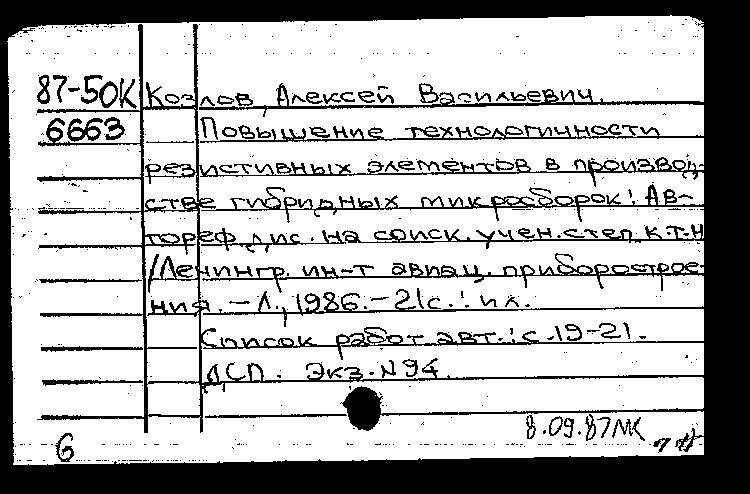 87-50К Козлов, Алексей Васильевич.
6663 Повышение технологичности
резистивных элементов в производ-
стве гибридных микросборок: Ав-
тореф. дис. на соиск. учен. степ. к.т.н
/Ленингр. ин-т авиац. приборострое-
ния. - Л., 1986. - 21с.: ил.
Список работ авт.: с. 19-21.
ДСП. Экз. N 94.
8.09.87 МК
6